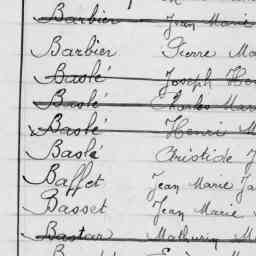 Barbier Jean Marie
Barbier Pierre Ma
Baslé Joseph
Baslé Charles Mar
Baslé Henri M
Baslé Aristide J
Baffet Jean Marie Ja
Basset Jean Marie
Bastar Mathurin M